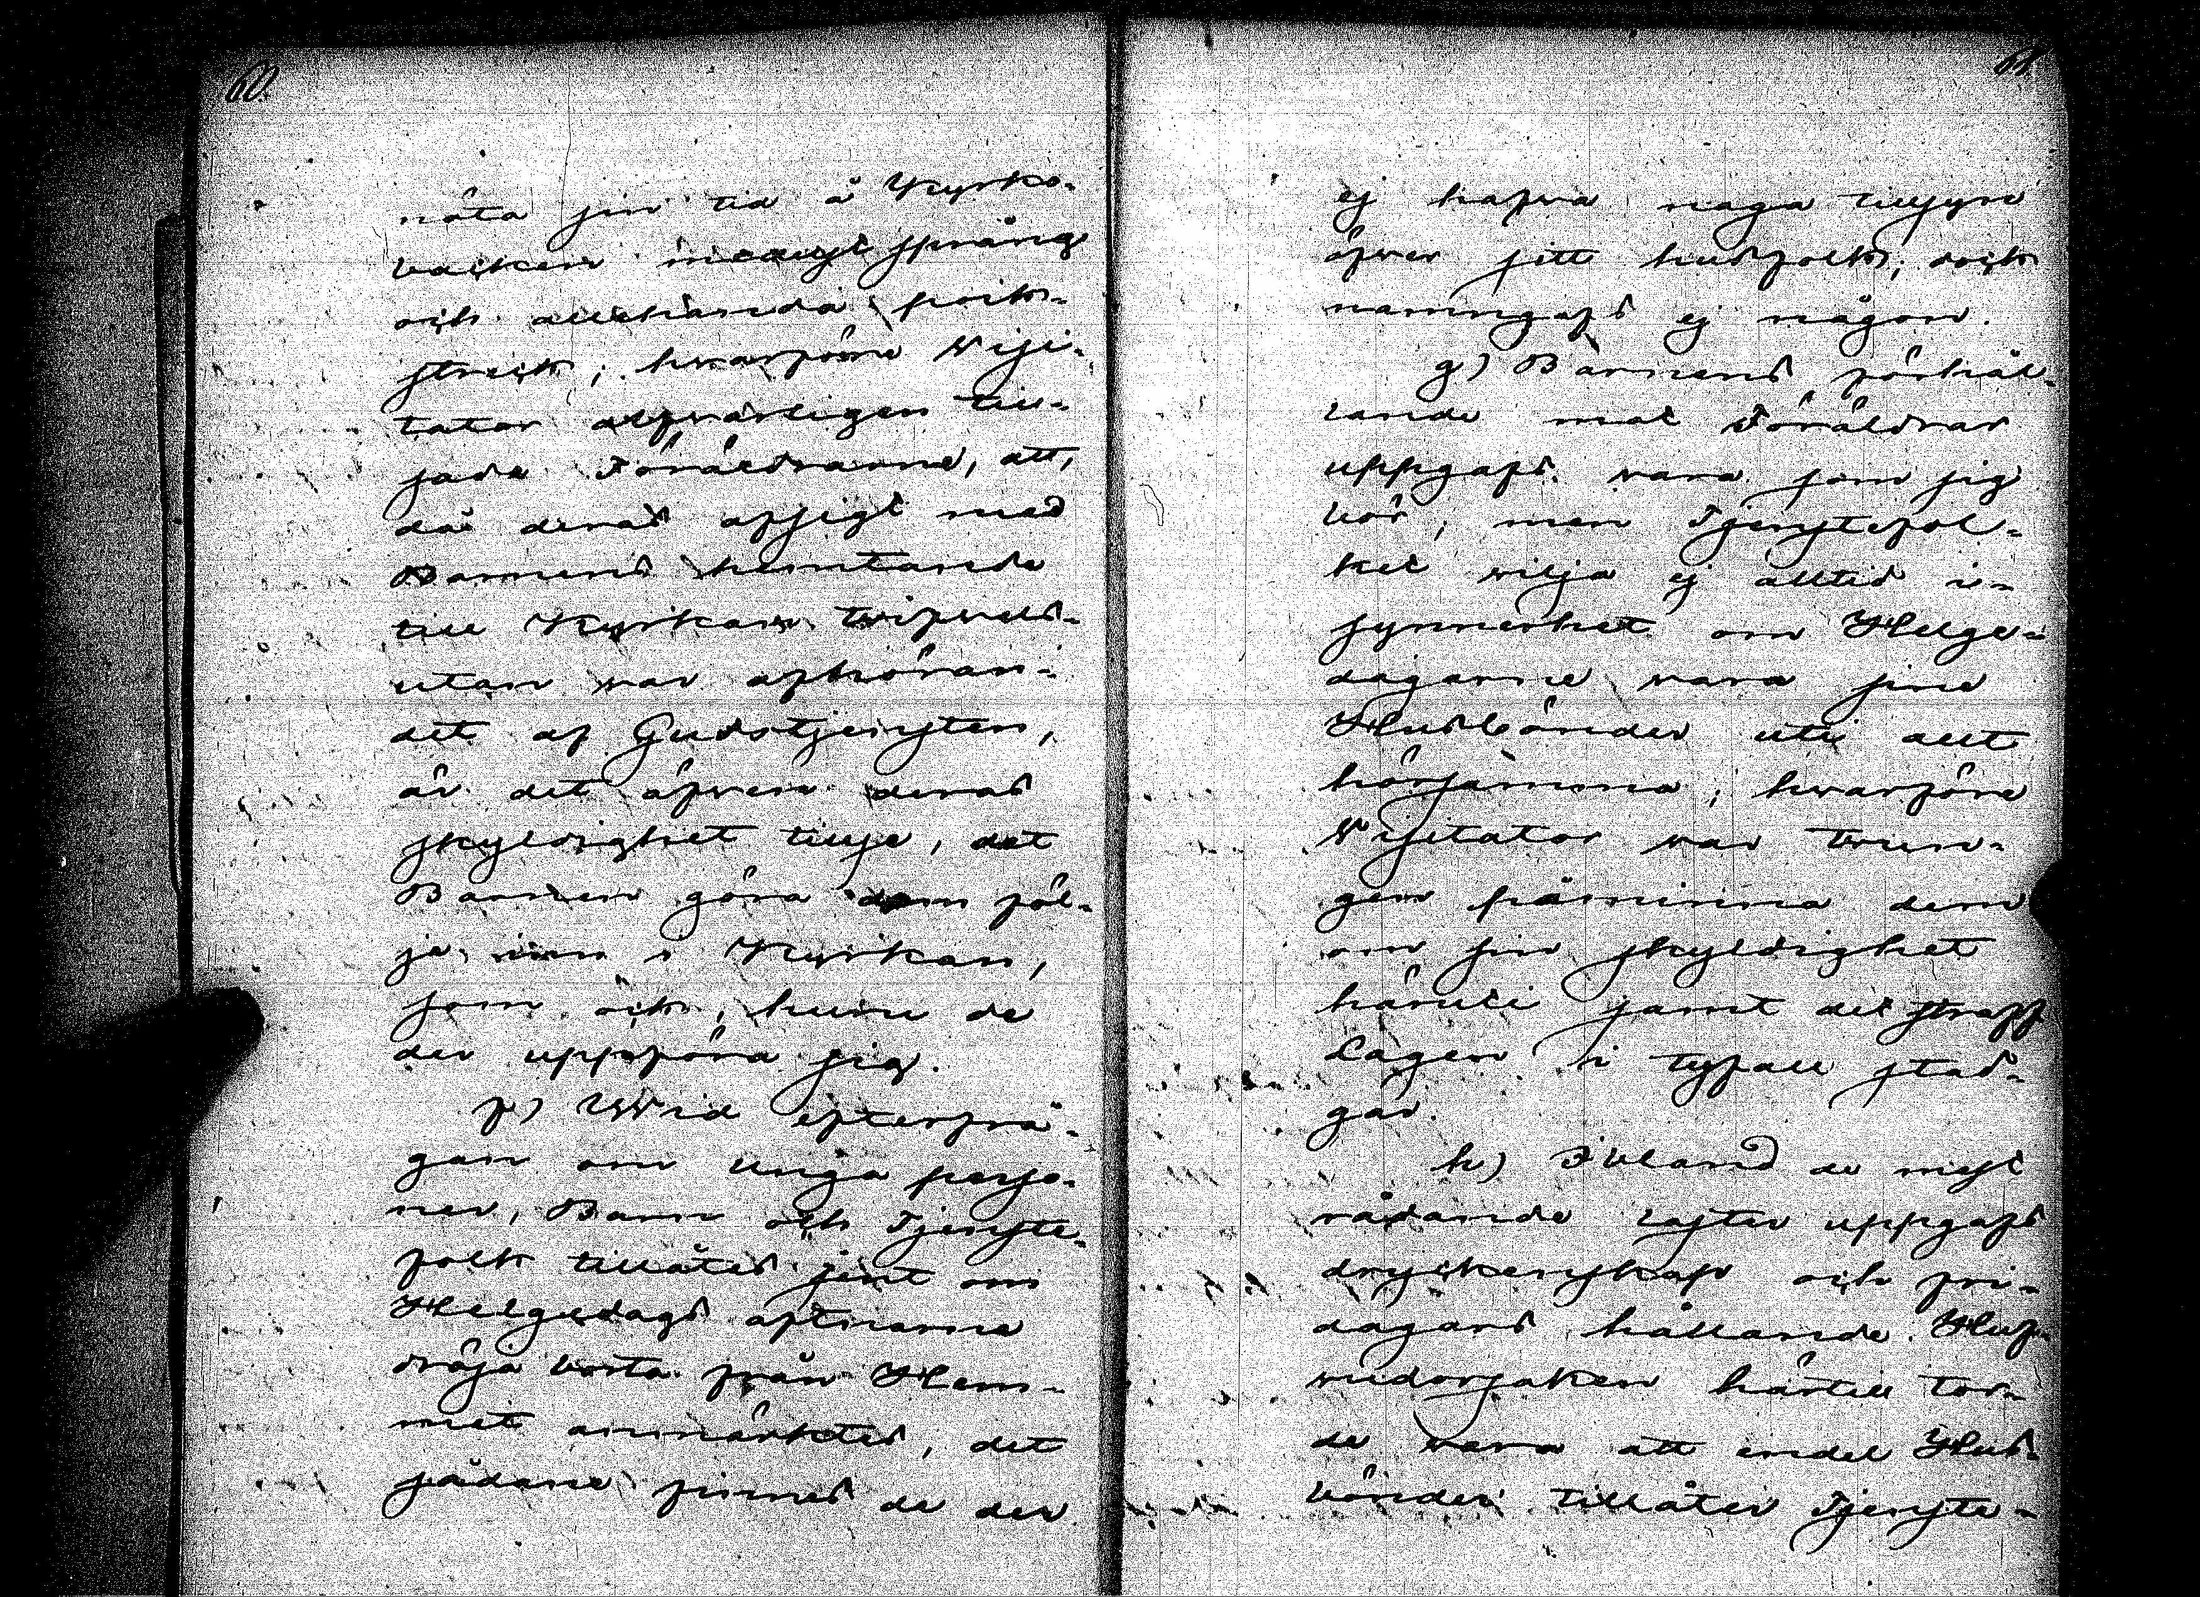 60.
nöta sin tid å Kyrko-
backen medelst språng
och allehanda pock-
streck; hwarföre Visi-
tator alfvarligen till-
sade Föräldrarne, att,
då deras afsigt med
Barnens hemtande
till Kyrkan twifvels-
utan var afhöran-
det af Gudstjensten,
är det äfven deras
skyldighet tillse, det
Barnen göra dem föl-
je inn i Kyrkan,
som ock, huru de
der uppföra sig.
f) Wid efterfrå-
gan om unga perso-
ner, Barn och Tjenste-
folk tillåtes sent om
Helgedags aftnarne
dröja borta från Hem-
met anmärktes, det
sådane finnes de der
61
ej hafva noga tillsyn
öfver sitt husfolk; dock
namngafs ej någon.
g) Barnens förhål-
lande mot Föräldrar
uppgafs vara som sig
bör; men Tjenstefol-
ket vilja ej alltid i-
synnerhet om Helge-
dagarne vara sine
Husbönder uti allt
hörsamma; hwarföre
Visitator var twun-
gen påminna dem
om sin skyldighet
häruti samt det straff
Lagen i ty fall stad-
gar.
h) Ibland de mest
rådande laster uppgafs
dryckenskap och fri-
dagars hållande. Huf-
vudorsaken härtill tor-
de vara att endel Hus-
bönder tillåter Tjenste-